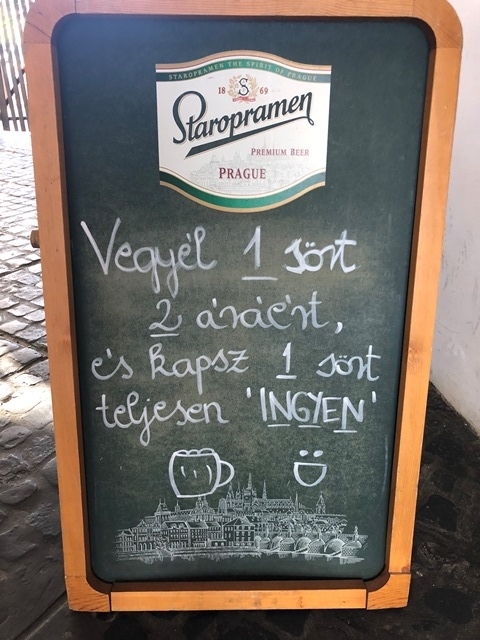 STAROPRAMEN THE SPIRIT OF PRAGUE
18 S 69
Staropramen
PREMIUM BEER
PRAGUE
Vegyél 1 sört
2 áráért,
és kapsz 1 sört
teljesen 'INGYEN'